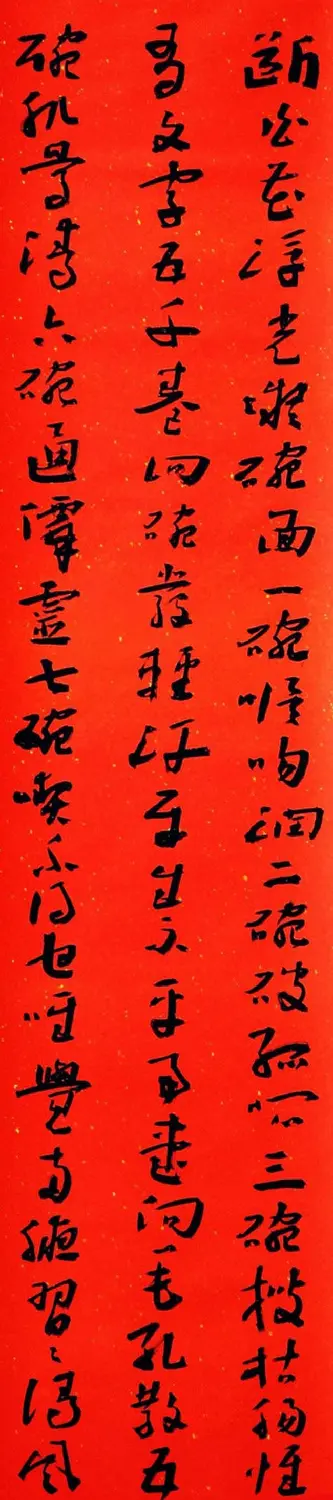 斷白花浮光凝碗面一碗喉吻潤二碗破孤悶三碗搜枯腸惟
有文字五千卷四碗發輕汗平生不平事盡向毛孔散五
碗肌骨清六碗通僊靈七碗喫不得也唯覺兩腋習々清風